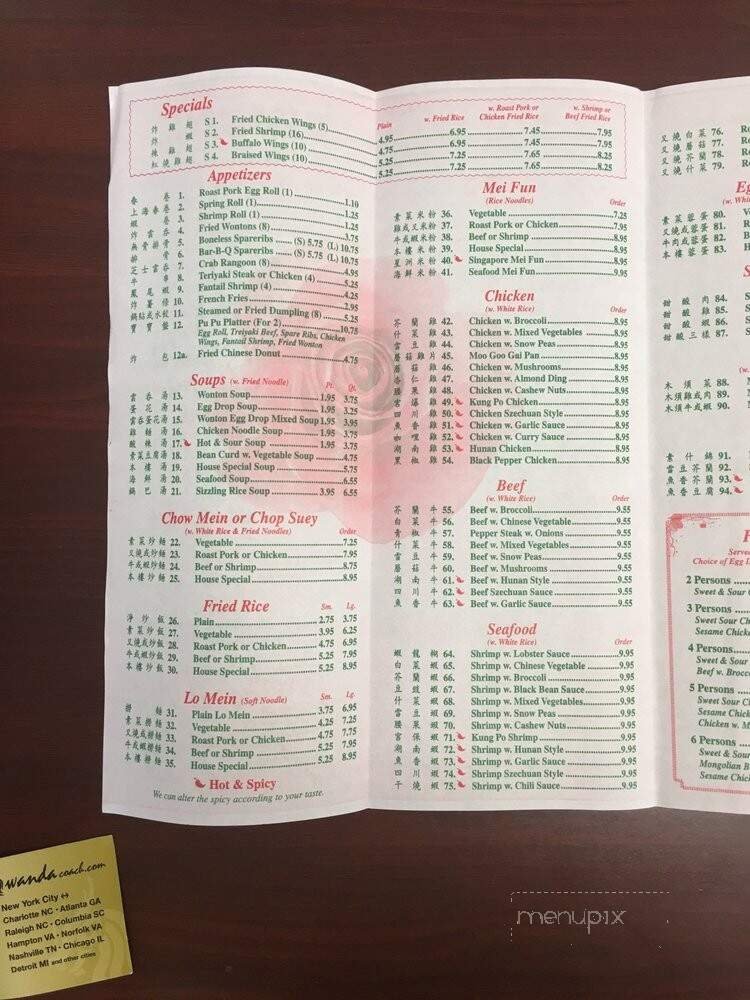 Specials
Plain w. Fried Rice w. Roast Pork or Chicken Fried Rice w. Shrimp or Beef Fried Rice
炸雞翅 S 1. Fried Chicken Wings (5) 4.95 6.95 7.45 7.95
炸蝦 S 2. Fried Shrimp (16) 4.75 6.95 7.45 7.95
辣雞翅 S 3. Buffalo Wings (10) 5.25 7.25 7.65 8.25
紅燒雞翅 S 4. Braised Wings (10) 5.25 7.25 7.65 8.25
Appetizers
春卷 1. Roast Pork Egg Roll (1) 1.10
上海春卷 2. Spring Roll (1) 1.25
蝦卷 3. Shrimp Roll (1) 1.25
炸雲吞 4. Fried Wontons (8) 3.75
無骨排骨 5. Boneless Spareribs (S) 5.75 (L) 10.75
排骨 6. Bar-B-Q Spareribs (S) 5.75 (L) 10.75
芝士雲吞 7. Crab Rangoon (8) 4.95
牛串 8. Teriyaki Steak or Chicken (4) 5.25
鳳尾蝦 9. Fantail Shrimp (4) 4.25
炸薯條 10. French Fries 2.95
鍋貼或水餃 11. Steamed or Fried Dumpling (8) 5.25
寶寶盤 12. Pu Pu Platter (For 2) 10.75
Egg Roll, Treiyaki Beef, Spare Ribs, Chicken
Wings, Fantail Shrimp, Fried Wonton
炸包 12a. Fried Chinese Donut 4.75
Soups (w. Fried Noodle) Pt. Qt.
雲吞湯 13. Wonton Soup 1.95 3.75
蛋花湯 14. Egg Drop Soup 1.95 3.25
雲吞蛋花湯 15. Wonton Egg Drop Mixed Soup 1.95 3.95
雞麵湯 16. Chicken Noodle Soup 1.95 3.75
酸辣湯 17. Hot & Sour Soup 1.95 3.75
素菜豆腐湯 18. Bean Curd w. Vegetable Soup 4.75
本樓湯 19. House Special Soup 5.75
海鮮湯 20. Seafood Soup 6.55
鍋巴湯 21. Sizzling Rice Soup 3.95 6.55
Chow Mein or Chop Suey
(w. White Rice & Fried Noodles) Order
素菜炒麵 22. Vegetable 7.25
叉燒或炒麵 23. Roast Pork or Chicken 7.95
牛或蝦炒麵 24. Beef or Shrimp 8.75
本樓炒麵 25. House Special 8.95
Fried Rice Sm. Lg.
淨炒飯 26. Plain 2.75 3.75
素菜炒飯 27. Vegetable 3.95 6.25
叉燒或炒飯 28. Roast Pork or Chicken 4.75 6.95
牛或蝦炒飯 29. Beef or Shrimp 5.25 7.95
本樓炒飯 30. House Special 5.25 8.95
Lo Mein (Soft Noodle) Sm. Lg.
撈麵 31. Plain Lo Mein 3.75 6.95
素菜撈麵 32. Vegetable 4.25 7.25
叉燒或撈麵 33. Roast Pork or Chicken 4.75 7.75
牛或蝦撈麵 34. Beef or Shrimp 5.25 7.95
本樓撈麵 35. House Special 5.25 8.95
Hot & Spicy
We can alter the spicy according to your taste.
Mei Fun
(Rice Noodles) Order
素菜米粉 36. Vegetable 7.25
雞或叉米粉 37. Roast Pork or Chicken 7.95
牛或蝦米粉 38. Beef or Shrimp 8.95
本樓米粉 39. House Special 8.95
星洲米粉 40. Singapore Mei Fun 8.95
海鮮米粉 41. Seafood Mei Fun 9.95
Chicken
(w. White Rice) Order
芥蘭雞 42. Chicken w. Broccoli 8.95
什菜雞 43. Chicken w. Mixed Vegetables 8.95
雪豆雞 44. Chicken w. Snow Peas 8.95
蘑菇雞片 45. Moo Goo Gai Pan 8.95
蘑菇雞 46. Chicken w. Mushrooms 8.95
杏仁雞 47. Chicken w. Almond Ding 8.95
腰果雞 48. Chicken w. Cashew Nuts 8.95
宮爆雞 49. Kung Po Chicken 8.95
四川雞 50. Chicken Szechuan Style 8.95
魚香雞 51. Chicken w. Garlic Sauce 8.95
咖喱雞 52. Chicken w. Curry Sauce 8.95
湖南雞 53. Hunan Chicken 8.95
黑椒雞 54. Black Pepper Chicken 8.95
Beef
(w. White Rice) Order
芥蘭牛 55. Beef w. Broccoli 9.55
白菜牛 56. Beef w. Chinese Vegetable 9.55
青椒牛 57. Pepper Steak w. Onions 9.55
什菜牛 58. Beef w. Mixed Vegetables 9.55
雪豆牛 59. Beef w. Snow Peas 9.55
蘑菇牛 60. Beef w. Mushrooms 9.55
湖南牛 61. Beef w. Hunan Style 9.55
四川牛 62. Beef Szechuan Sauce 9.55
魚香牛 63. Beef w. Garlic Sauce 9.55
Seafood
(w. White Rice) Order
蝦龍糊 64. Shrimp w. Lobster Sauce 9.95
白菜蝦 65. Shrimp w. Chinese Vegetable 9.95
芥蘭蝦 66. Shrimp w. Broccoli 9.95
豆豉蝦 67. Shrimp w. Black Bean Sauce 9.95
什菜蝦 68. Shrimp w. Mixed Vegetables 9.95
雪豆蝦 69. Shrimp w. Snow Peas 9.95
腰果蝦 70. Shrimp w. Cashew Nuts 9.95
宮保蝦 71. Kung Po Shrimp 9.95
湖南蝦 72. Shrimp w. Hunan Style 9.95
魚香蝦 73. Shrimp w. Garlic Sauce 9.95
四川蝦 74. Shrimp Szechuan Style 9.95
干燒蝦 75. Shrimp w. Chili Sauce 9.95
叉燒白菜 76.
叉燒蘑菇 77.
叉燒芥蘭 78.
叉燒什菜 79.
Eg
(w. Whi
素菜蓉蛋 80.
叉燒或蓉蛋 81.
牛肉或蓉蛋 82.
本樓蓉蛋 83.
甜酸肉 84.
甜酸雞 85.
甜酸蝦 86.
甜酸三樣 87.
木須菜 88.
木須雞或肉 89.
木須牛或蝦 90.
素什錦 91.
雪豆芥蘭 92.
魚香芥蘭 93.
魚香豆腐 94.
Serve
Choice of Egg D
2 Persons
Sweet & Sour
3 Persons
Sweet Sour Ch
Sesame Chick
4 Persons
Sweet & Sour
Beef w. Brocc
5 Persons
Sweet Sour C
Sesame Chick
Chicken w. M
6 Persons
Sweet & Sour
Mongolian B
Sesame Chic
wandacoach.com
New York City ↔
Charlotte NC • Atlanta GA
Raleigh NC • Columbia SC
Hampton VA • Norfolk VA
Nashville TN • Chicago IL
Detroit MI and other cities
menupix